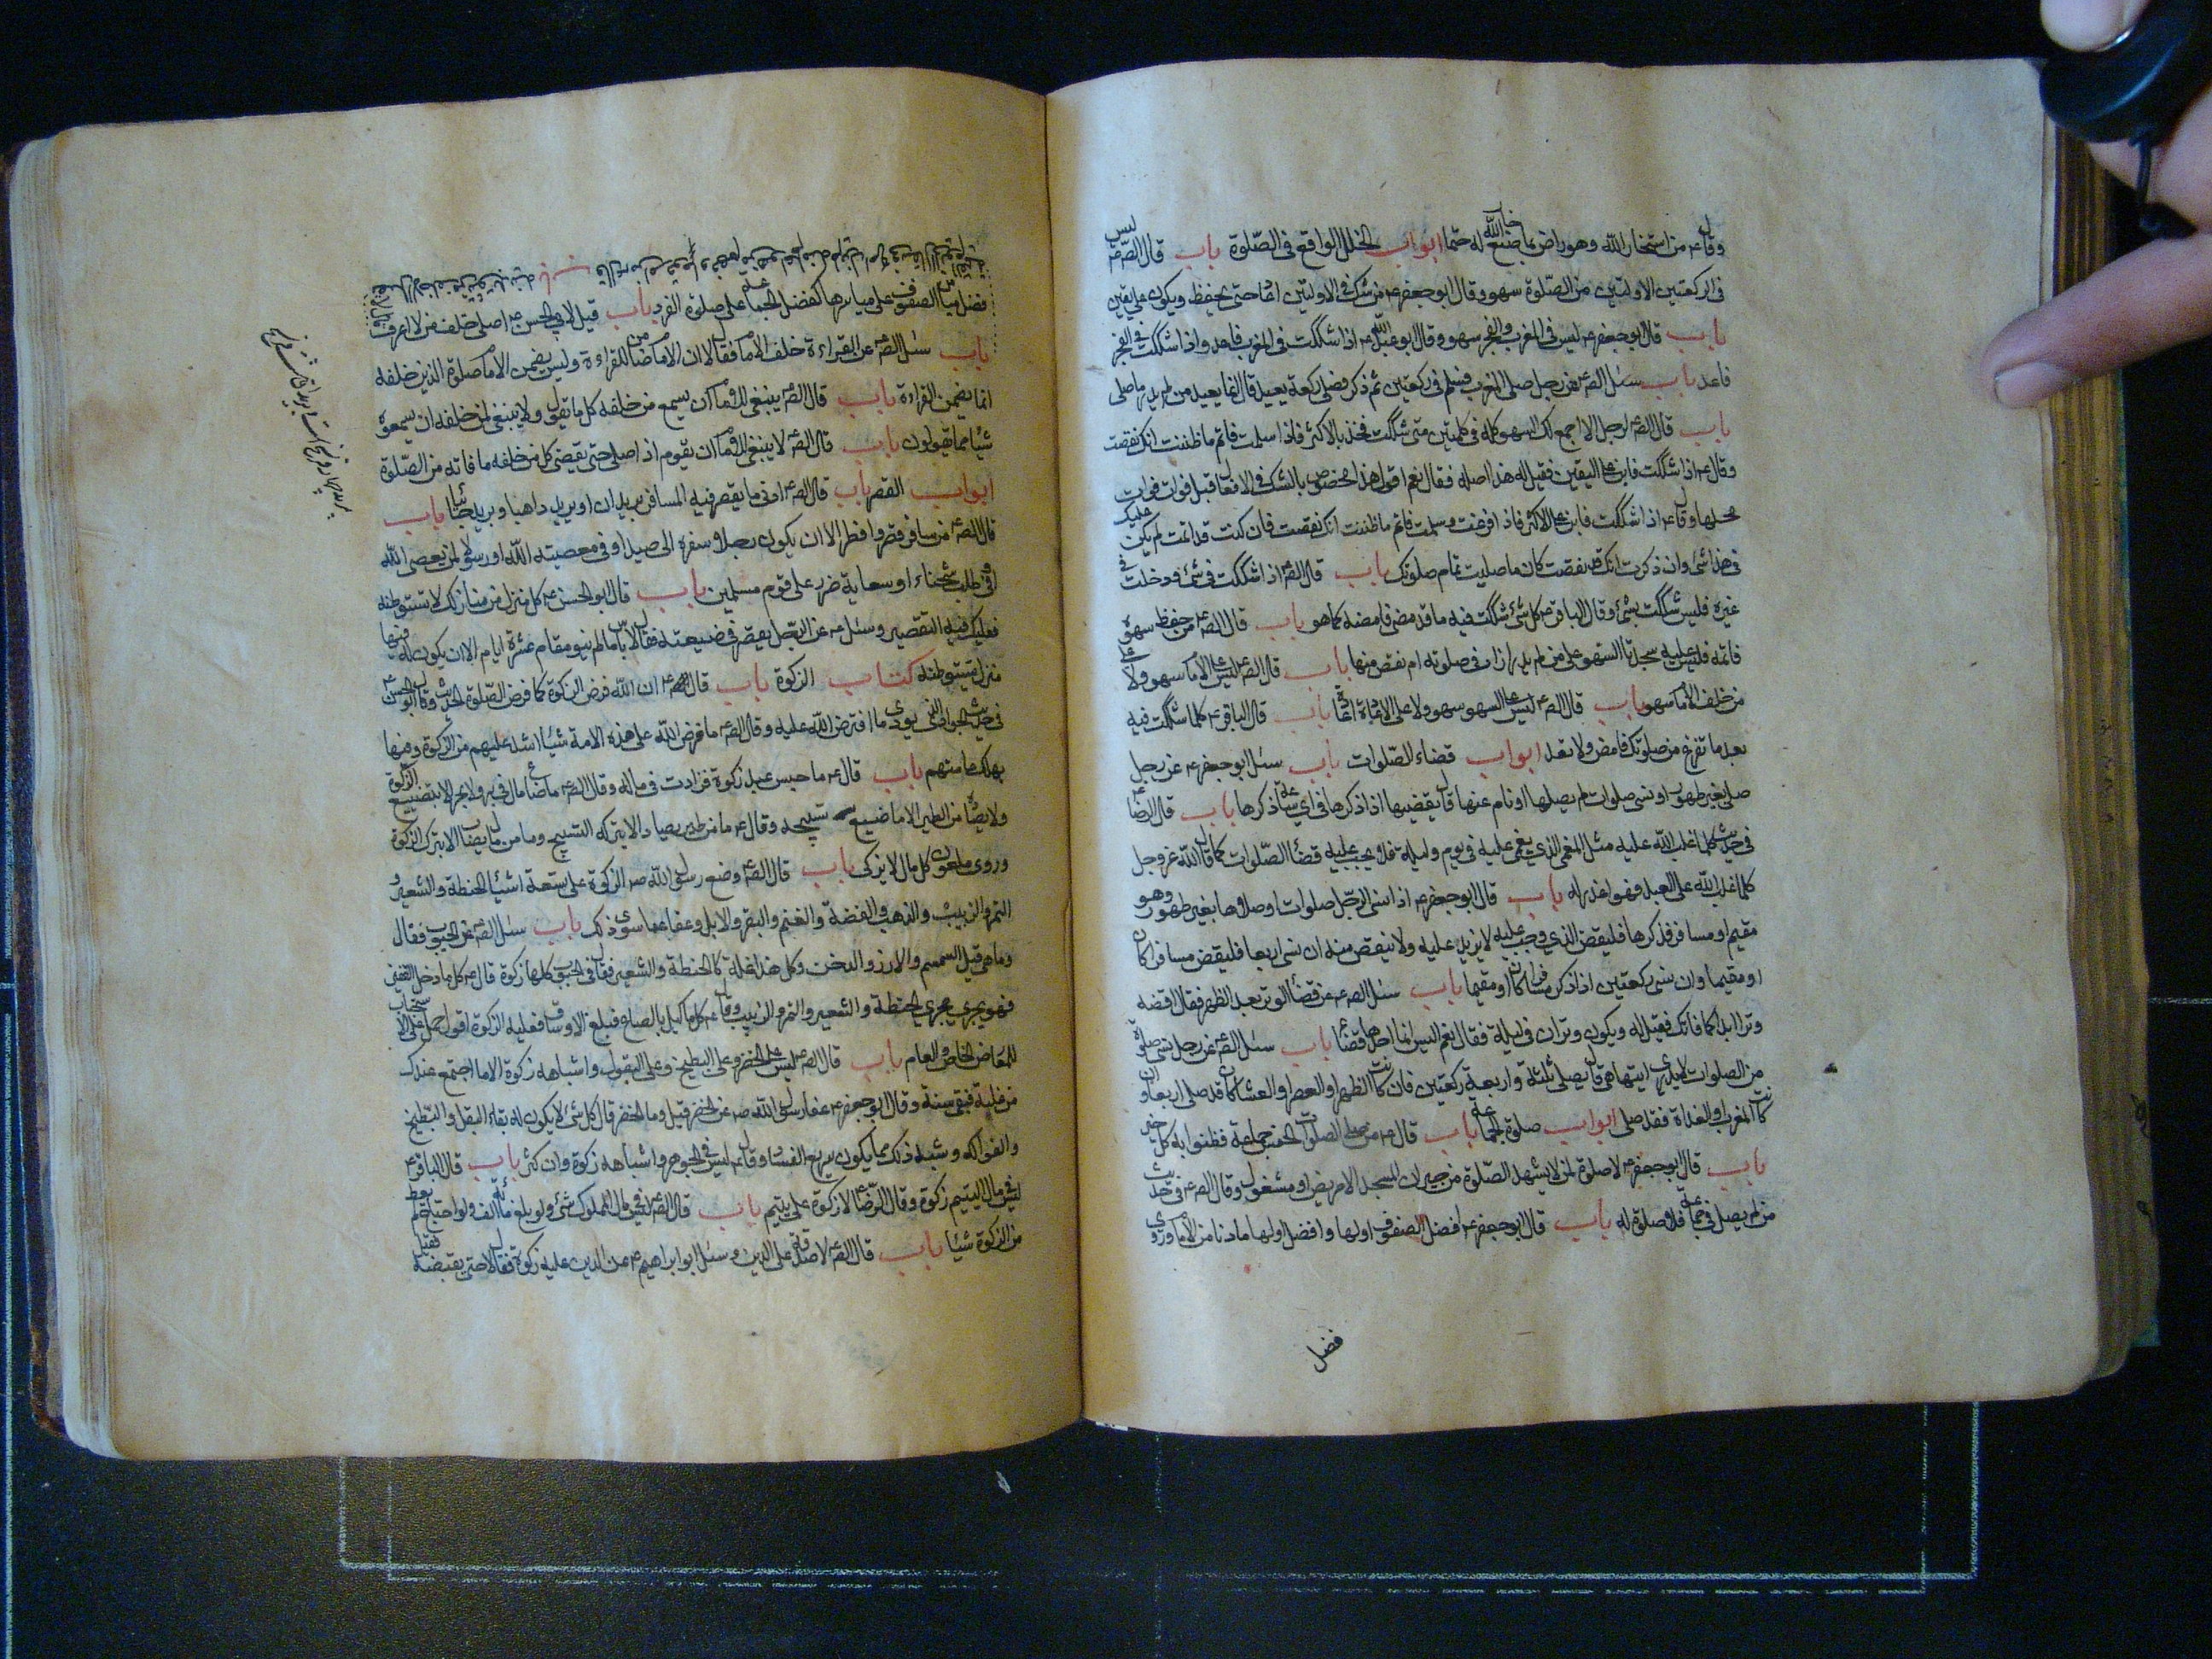 وقال ع من استخار الله وهو راض بما صنع الله له خار الله له حتما ابواب الخلل الواقع فى الصّلوة باب قال الصّ ع ليس
فى الركعتين الاوليتين من الصّلوة سهو وقال ابو جعفر ع من شك فى الاوليتين اعاد حتى يحفظ ويكون على يقين
باب قال ابو جعفر ع ليس فى المغرب والفجر سهو وقال ابو عبد الله ع اذا شككت فى المغرب فاعد واذا شككت فى الفجر
فاعد باب سئل الص ع عن رجل صلى المغرب فسلم فى ركعتين ثم ذكر فصلى ركعة يعيد قال انما يعيد من لم يدر ما صلى
باب قال الص ع لرجل الا اجمع لك السهو كله فى كلمتين متى شككت فخذ بالاكثر فاذا سلمت فاتم ما ظننت انك نقصت
وقال ع اذا شككت فابن على اليقين فقيل له هذا اصل فقال نعم اقول هذا مخصوص بالشك فى الافعال قبل فوات فوات
محلها وقال ع اذا شككت فابن على الاكثر فاذا فرغت وسلمت فاتم ما ظننت انك نقصت فان كنت قد اتممت لم يكن عليك
فى هذا شئ وان ذكرت انك قد نقصت كان ما صليت تمام صلوتك باب قال الص ع اذا شككت فى شئ ودخلت فى
غيره فليس شككت بشئ وقال الباقر ع كل شئ شككت فيه ما قد مضى فامضه كما هو باب قال الص ع من حفظ سهوه
فاتمه فليس عليه سجدتا السهو على من لم يدر ازاد فى صلوته ام نقص منها باب قال الص ع ليس على الامام سهو ولا على
من خلف الامام سهو باب قال الص ع ليس على السهو سهو ولا على الاعادة اعادة باب قال الباقر ع كلما شككت فيه
بعد ما تفرغ من صلوتك فامض ولا تعد ابواب قضاء الصّلوات باب سئل ابو جعفر ع عن رجل
صلى بغير طهور او نسى صلوات لم يصلها او نام عنها قال يقضيها اذا ذكرها فى اى ساعة ذكرها باب قال الرضا ع
فى حديث كلما غلب الله عليه مثل المغمى الذى يغمى عليه فى يوم وليلة فلا يجب عليه قضاء الصّلوات كما قال الله عز وجل
كلما غلب الله على العبد فهو اعذر له باب قال ابو جعفر ع اذا نسى الرّجل صلوات او صلاها بغير طهور وهو
مقيم او مسافر فذكرها فليقض الذى وجب عليه لا يزيد عليه ولا ينقص منه ان نسى اربعا فليقض مسافرا كان
او مقيما وان نسى ركعتين اذا ذكر مسافرا كان او مقيما باب سئل الص ع عن قضاء الوتر بعد الظهر فقال اقضه
وترا ابدا كما فاتك فقيل له ويكون وتران فى ليلة فقال نعم اليس انما احدهما قضاء باب سئل الص ع عن رجل نسى صلوة
من الصلوات لا يدرى ايتها هى قال يصلى ثلثة واربعة وركعتين فان كانت الظهر او العصر او العشاء كان قد صلى اربعا وان
كانت المغرب او الغداة فقد صلى ابواب صلوة الجماعة باب قال ع من صلى الصلوات الخمس جماعة فظنوا به كل خير
باب قال ابو جعفر ع لا صلوة لمن لا يشهد الصّلوة من جيران المسجد الا مريض او مشغول وقال الص ع فى حديث
من لم يصل فى جماعة فلا صلوة له باب قال ابو جعفر ع افضل الصفوف اولها وافضل اولها ما دنا من الامام وروى
فضل
فضل ميامن الصفوف على مياسرها كفضل الجماعة على صلوة الفرد باب قيل لابى الحسن ع اصلى خلف من لا اعرف
باب سئل الص ع عن القراءة خلف الامام فقال لا ان الامام ضامن للقراءة وليس يضمن الامام صلوة الذين خلفه
انما يضمن القراءة باب قال الص ع ينبغى للامام ان يسمع من خلفه كل ما يقول ولا ينبغى لمن خلفه ان يسمعوه
شيئا مما يقولون باب قال الص ع لا ينبغى للامام ان يقوم اذا صلى حتى يقضى كل من خلفه ما فاته من الصّلوة
ابواب القصر باب قال الص ع ادنى ما يقصر فيه المسافر بريدان او بريد ذاهبا وبريد جائيا باب
قال الص ع من سافر قصر وافطر الا ان يكون رجلا سفره الى صيد او فى معصيته الله او رسولا لمن يعصى الله
او فى طلب شحناء او سعاية ضرر على قوم مسلمين باب قال ابو الحسن ع كل منزل من منازلك لا تستوطنه
فعليك فيه التقصير وسئل ع عن الرّجل يقصر فى ضيعته فقال لا باس ما لم ينو مقام عشرة ايام الا ان يكون له فيها
منزل يستوطنه كتاب الزكوة باب قال الص ع ان الله فرض الزكوة كما فرض الصّلوة الحديث وقال ابو الحسن ع
فى حديث الجواد الذى يودى ما افترض الله عليه وقال الص ع ما فرض الله على هذه الامة شيئا اشد عليهم من الزكوة وفيها
يهلك عامتهم باب قال ع ما حبس عبد زكوة فزادت فى ماله وقال الص ع ما ضاع مال فى بر ولا بحر الا بتضييع الزكوة
ولا يصاد من الطير الا ما ضيع تسبيحه وقال ع ما من طير يصاد الا بتركه التسبيح وما من مال يصاب الا بترك الزكوة
وروى ملعون كل مال لا يزكى باب قال الص ع وضع رسول الله ص الزكوة على تسعة اشياء الحنطة والشعير و
التمر والزبيب والذهب والفضة والغنم والبقر والابل وعفا عما سوى ذلك باب سئل الص ع عن الحبوب فقال
وما هى قيل السمسم والارز والدخن وكل هذا غلة كالحنطة والشعير فقال فى الحبوب كلها زكوة قال ع كل ما دخل القفيز
فهو يجرى مجرى الحنطة والشعير والتمر والزبيب وقال ع كل ما كيل بالصاع فبلغ الاوساق فعليه الزكوة اقول حمل على الاستحباب
للمعارض الخاص والعام باب قال الص ع ليس على الخضر وعلى البطيخ وعلى البقول واشباهه زكوة الا ما اجتمع عندك
من غلته فبقى سنة وقال ابو جعفر ع عفا رسول الله ص عن الخضر قيل وما الخضر قال كل شئ لا يكون له بقاء البقل والبطيخ
والفواكه وشبه ذلك مما يكون سريع الفساد وقال ع ليس فى الجوهر واشباهه زكوة وان كثر باب قال الباقر ع
ليس فى مال اليتيم زكوة وقال الرّضا ع لا زكوة على يتيم باب قال الص ع ليس فى مال المملوك شئ ولو بلغ مائة الف ولو احتاج لم يعط
من الزكوة شيئا باب قال الص ع لا صدقة على الدين وسئل ابو ابراهيم ع عن الدين عليه زكوة فقال لا حتى يقبضه فقيل